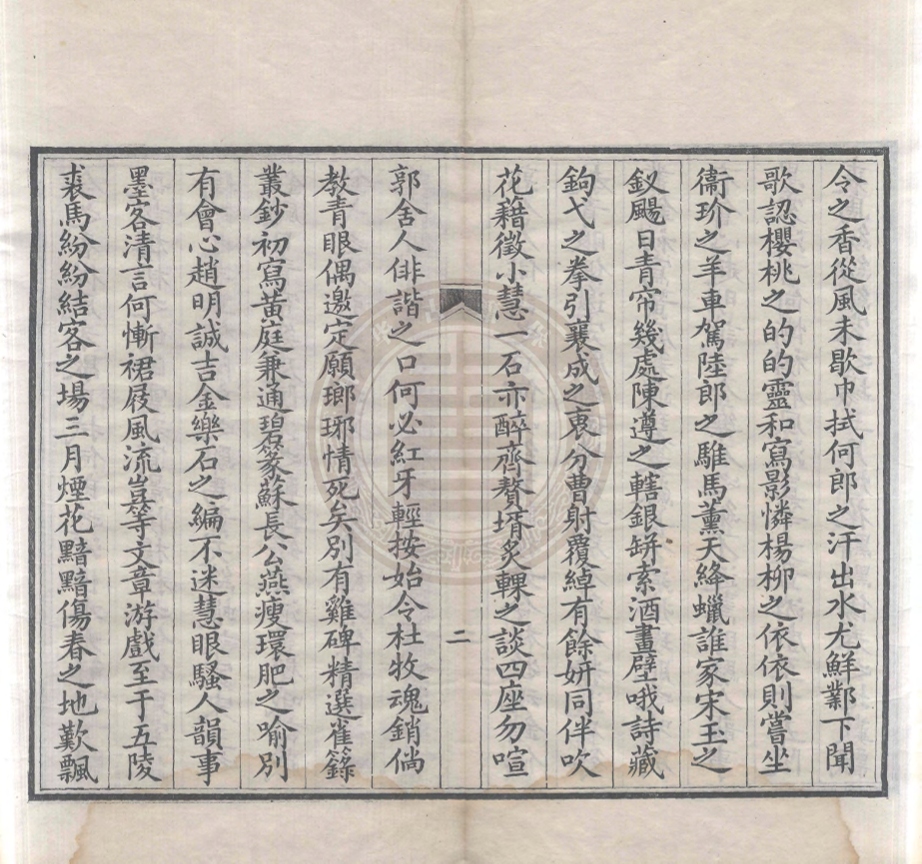 令之香從風未歇巾拭何郎之汗出水尤鮮鄴下聞
歌認櫻桃之的的靈和寫影憐楊柳之依依則嘗坐
衞玠之羊車駕陸郎之騅馬薰天絳蠟誰家宋玉之
釵颺日青帘幾處陳遵之轄銀缾索酒畫壁哦詩藏
鉤弋之拳引襄成之衷分曹射覆綽有餘妍同伴吹
花藉徵小慧一石亦醉齊贅壻炙輠之談四座勿喧
二
郭舍人俳諧之口何必紅牙輕按始令杜牧魂銷倘
教青眼偶邀定願瑯琊情死矣別有雞碑精選雀籙
叢鈔初寫黃庭兼通碧篆蘇長公燕瘦環肥之喻別
有會心趙明誠吉金樂石之編不迷慧眼騷人韻事
墨客清言何慚裙屐風流豈等文章游戲至于五陵
裘馬紛紛結客之場三月煙花黯黯傷春之地歎飄